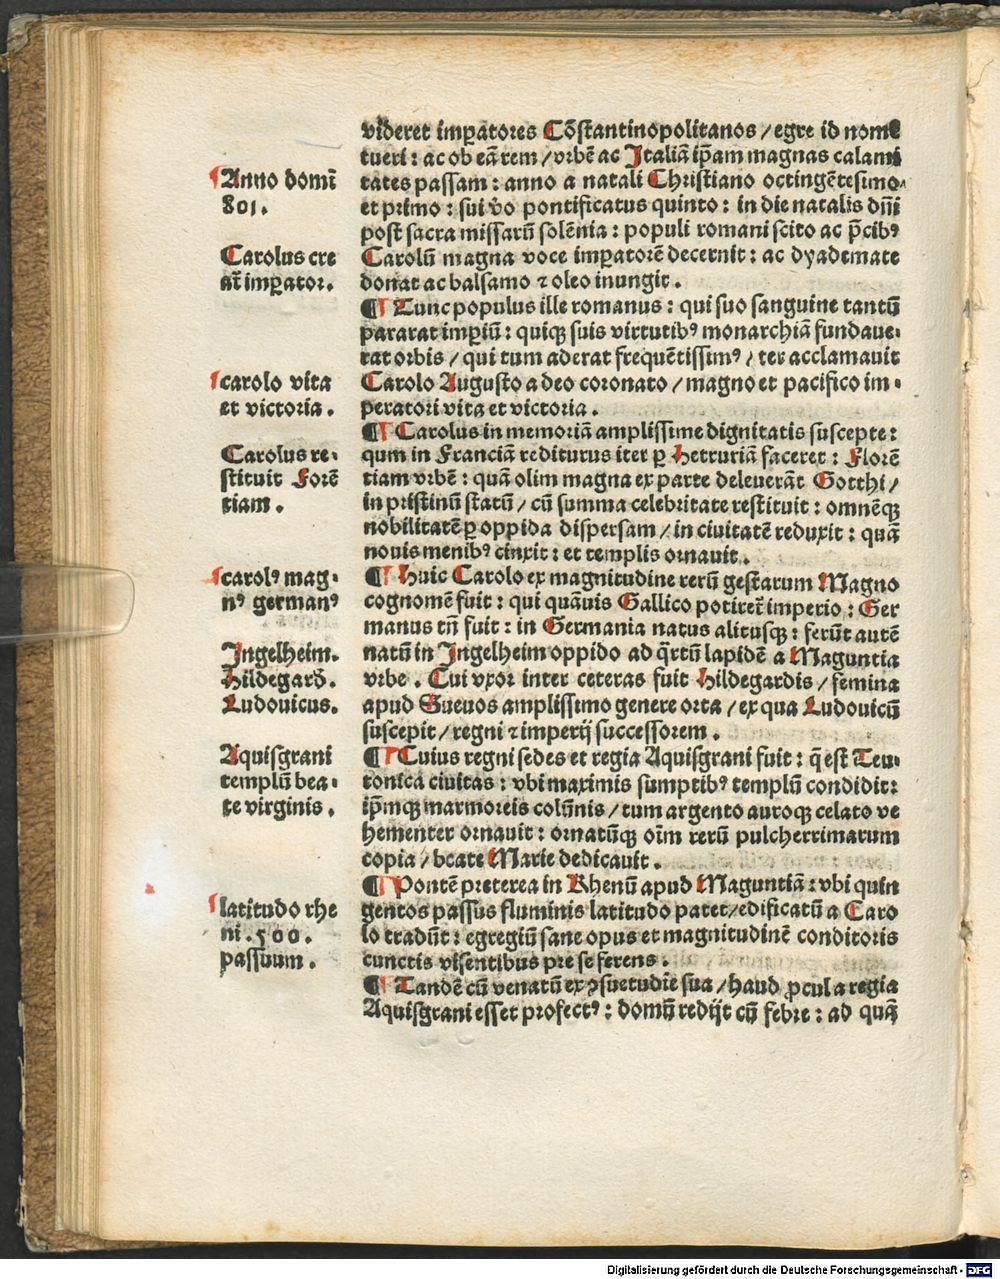 videret imꝑatores Cõstantinopolitanos / egre id nomẽ
tueri : ac ob eã rem / vrbẽ ac Italiã ip̃am magnas calami
tates passam : anno a natali Christiano octingẽtesimo
et primo : sui v̊o pontificatus quinto : in die natalis dñi
post sacra missarũ solẽnia : populi romani scito ac p̃cibꝰ
Carolũ magna voce imꝑatorẽ decernit : ac dyademate
donat ac balsamo ⁊ oleo inungit .
¶ Tunc populus ille romanus : qui suo sanguine tantũ
pararat imꝑiũ : quiqꝫ suis virtutibꝰ monarchiã fundaue⸗
rat orbis / qui tum aderat frequẽtissimꝰ / ter acclamauit
Carolo Augusto a deo coronato / magno et pacifico im⸗
peratori vita et victoria .
¶ Carolus in memoriã amplissime dignitatis suscepte :
qum in Franciã rediturus iter ꝑ Hetruriã faceret : Florẽ
tiam vrbẽ : quã olim magna ex parte deleuerãt Gotthi /
in pristinũ statũ / cũ summa celebritate restituit : omnẽqꝫ
nobilitatẽ ꝑ oppida dispersam / in ciuitatẽ reduxit : quã
nouis menibꝰ cinxit : et templis ornauit .
¶ Huic Carolo ex magnitudine rerũ gestarum Magno
cognomẽ fuit : qui quãuis Gallico potiret̃ imperio : Ger
manus tñ fuit : in Germania natus alitusqꝫ : ferũt autẽ
natũ in Ingelheim oppido ad q̃rtũ lapidẽ a Maguntia
vrbe . Cui vxor inter ceteras fuit Hildegardis / femina
apud Sueuos amplissimo genere orta / ex qua Ludouicũ
suscepit / regni ⁊ imperij successorem .
¶ Cuius regni sedes et regia Aquisgrani fuit : q̃ est Teu⸗
tonica ciuitas : vbi maximis sumptibꝰ templũ condidit :
ip̃mqꝫ marmoreis colũnis / tum argento auroqꝫ celato ve
hementer ornauit : ornatũqꝫ oĩm rerũ pulcherrimarum
copia / beate Marie dedicauit .
¶ Pontẽ preterea in Rhenũ apud Maguntiã : vbi quin
gentos passus fluminis latitudo patet / edificatũ a Caro
lo tradũt : egregiũ sane opus et magnitudinẽ conditoris
cunctis visentibus pre se ferens .
¶ Tandẽ cũ venatũ ex ꝯsuetudie sua / haud ꝓcul a regia
Aquisgrani esset profectꝰ : domũ redijt cũ febre : ad quã
Anno domĩ
801 .
Carolus cre
at̃ imꝑator .
carolo vita
et victoria .
Carolus re⸗
stituit Forẽ
tiam .
carolꝰ mag⸗
nꝰ germanꝰ
Ingelheim .
Hildegard .
Ludouicus .
Aquisgrani
templũ bea⸗
te virginis .
latitudo rhe
ni . 500 .
passuum .
Digitalisierung gefördert durch die Deutsche Forschungsgemeinschaft - DFG